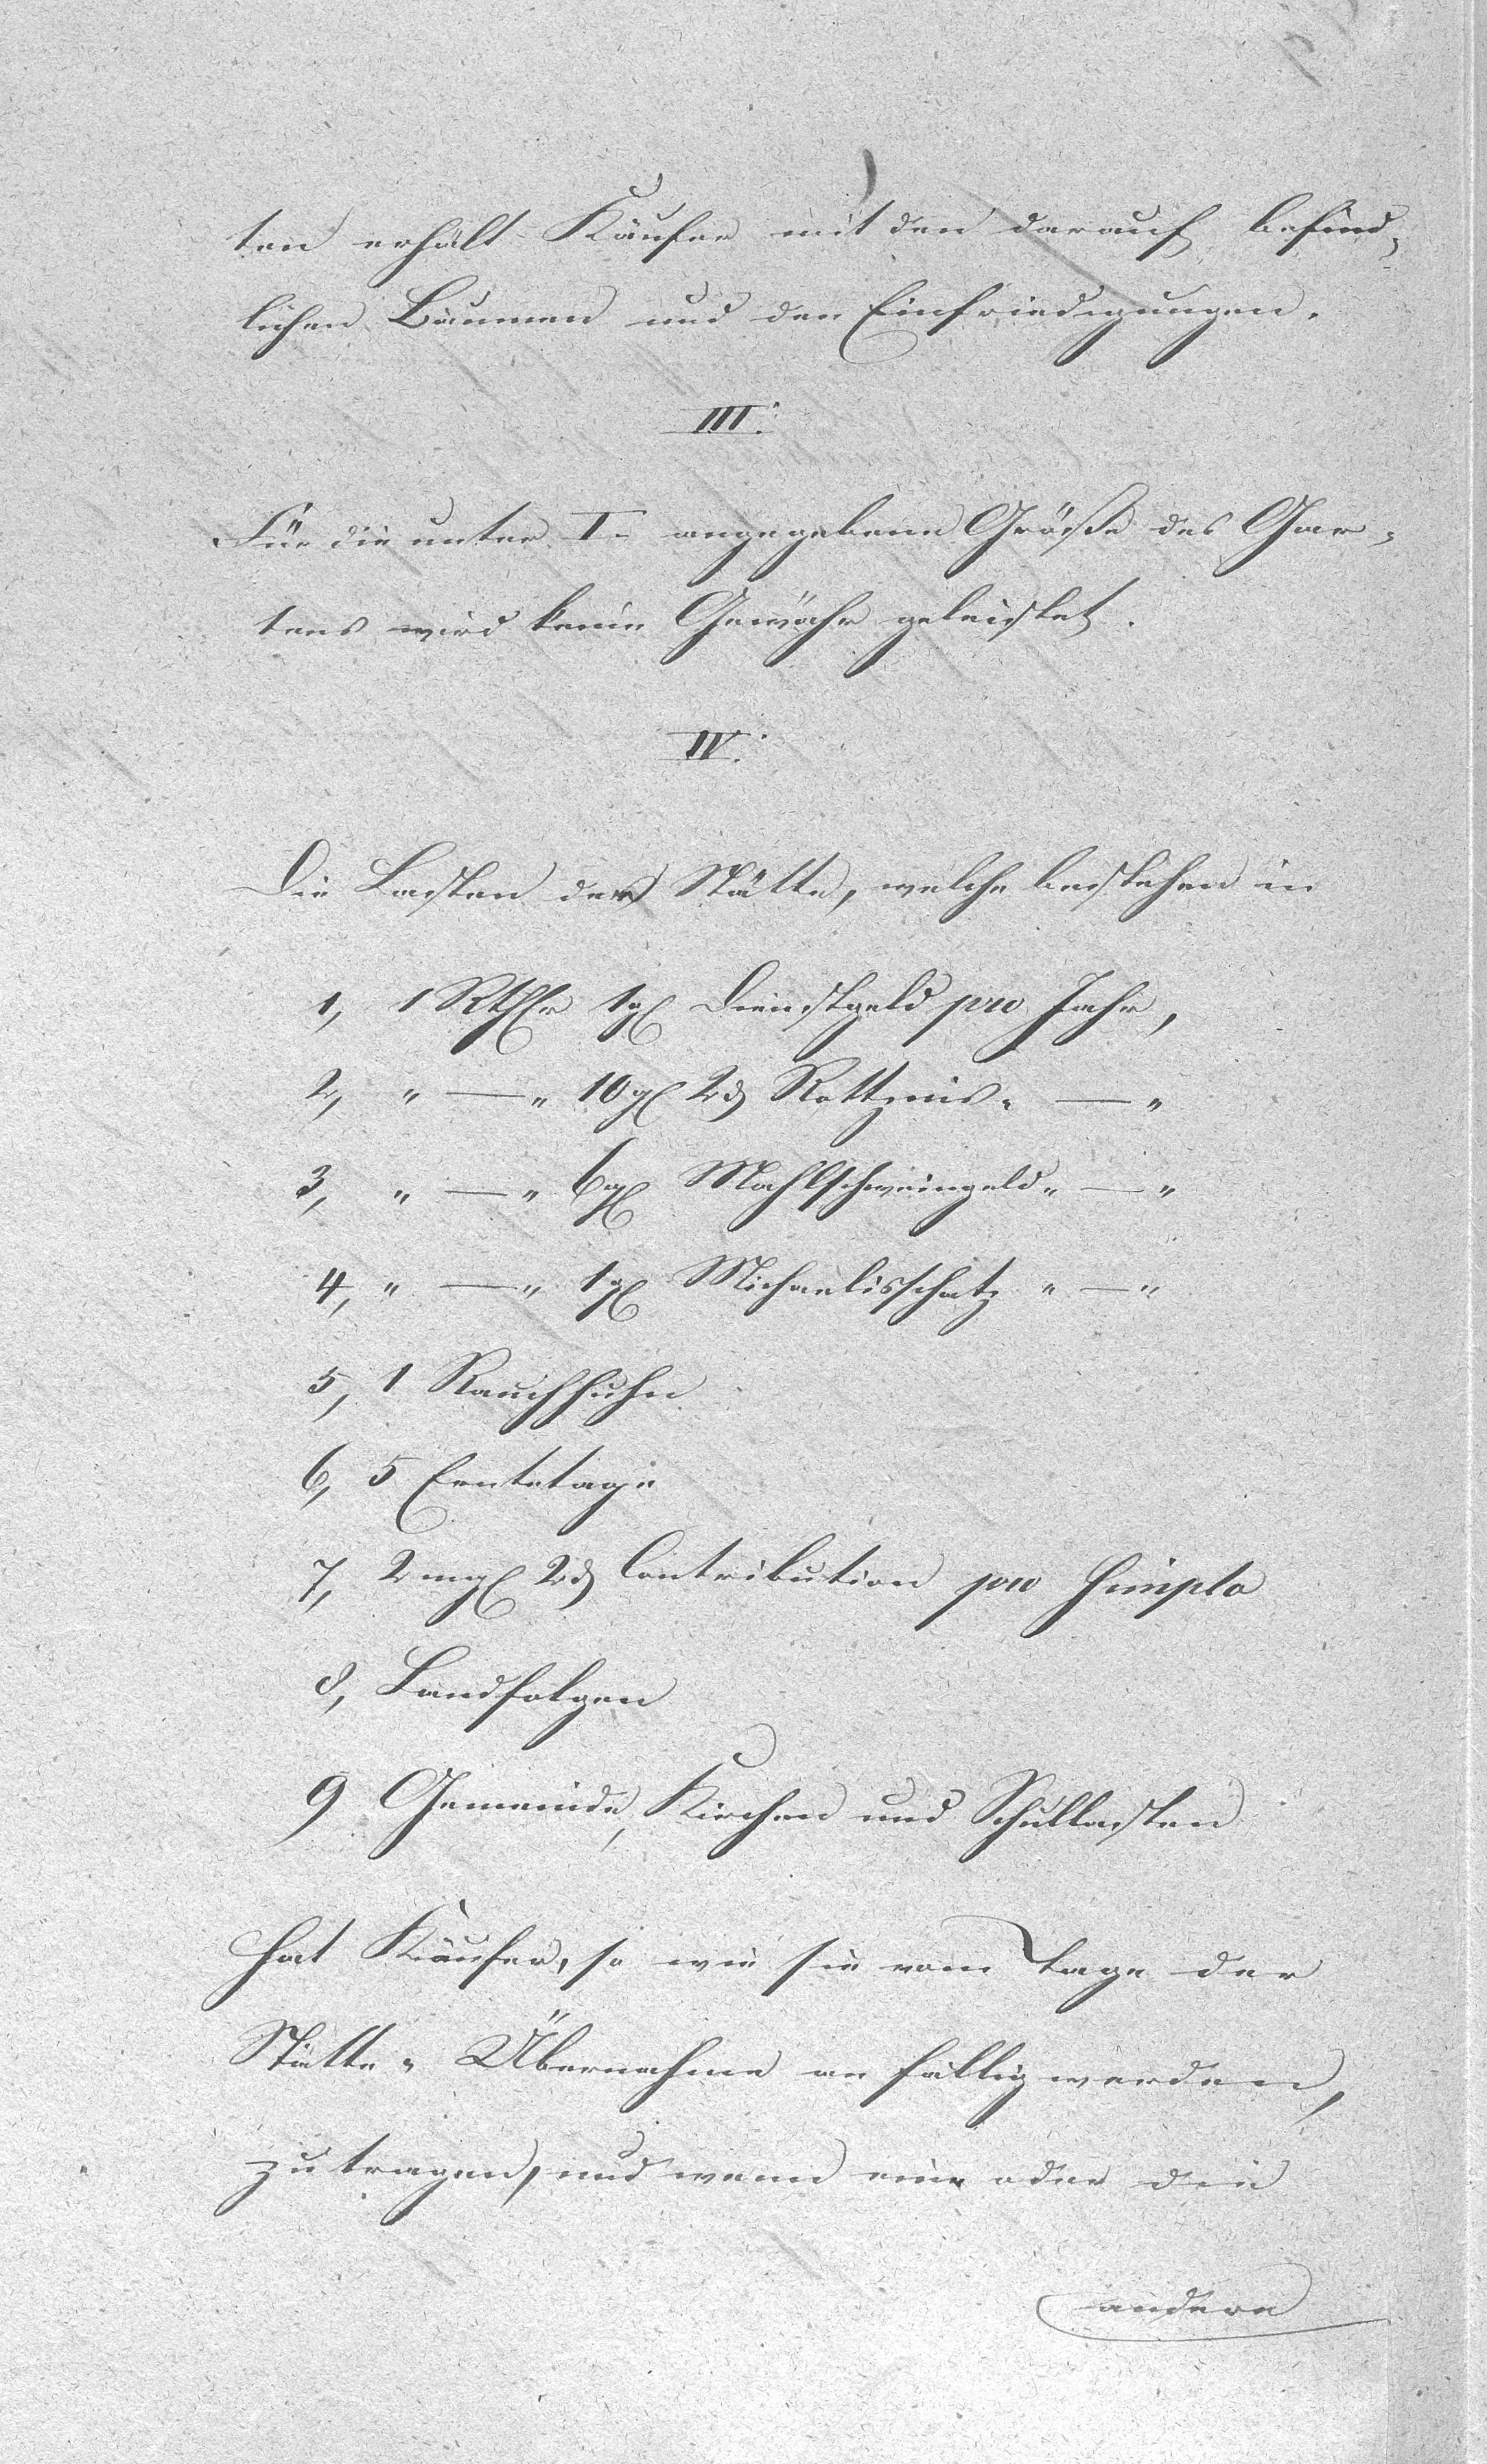 ten erhält Käufer mit den darauf befind-
lichen Bäumen und den Einfriedigungen.
III.
Für die unter I. angegebene Größe des Gar-
tens wird keine Gewähr geleistet.
IV.
Die Lasten der Stätte, welche bestehen in
1, 1 Rthlr 1 gl Dienstgeld pro Jahr,
2, " — " 10 gl 2 d Rottzins " — "
3, " — " 6 gl Mahlschweingeld " — "
4, " — " 1 gl Michaelisschatz " — "
5, 1 Rauchhuhn
6, 5 Erntetage
7, 2 mgl 2 d Contribution pro Simplo
8, Landfolgen
9 Gemeinde, Kirchen und Schullasten
hat Käufer, so wie sie vom Tage der
Stätte-Übernahme an fällig werden,
zu tragen, und wenn eine oder die
andere